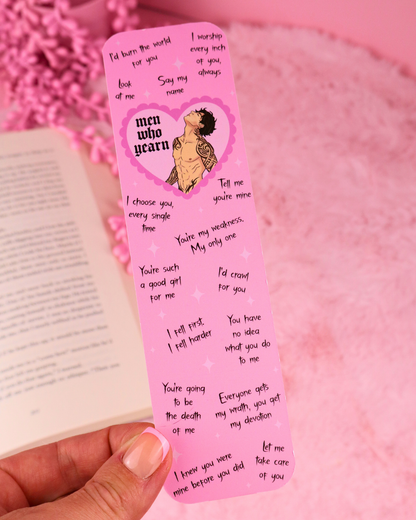 I'd burn the world
for you
I worship
every inch
of you,
always
Look
at me
Say my
name
men
who
yearn
Tell me
you're mine
I choose you,
every single
time
You're my weakness,
My only one
You're such
a good girl
for me
I'd crawl
for you
I fell first,
I fell harder
You have
no idea
what you do
to me
You're going
to be
the death
of me
Everyone gets
my wrath, you get
my devotion
I knew you were
mine before you did
Let me
take care
of you